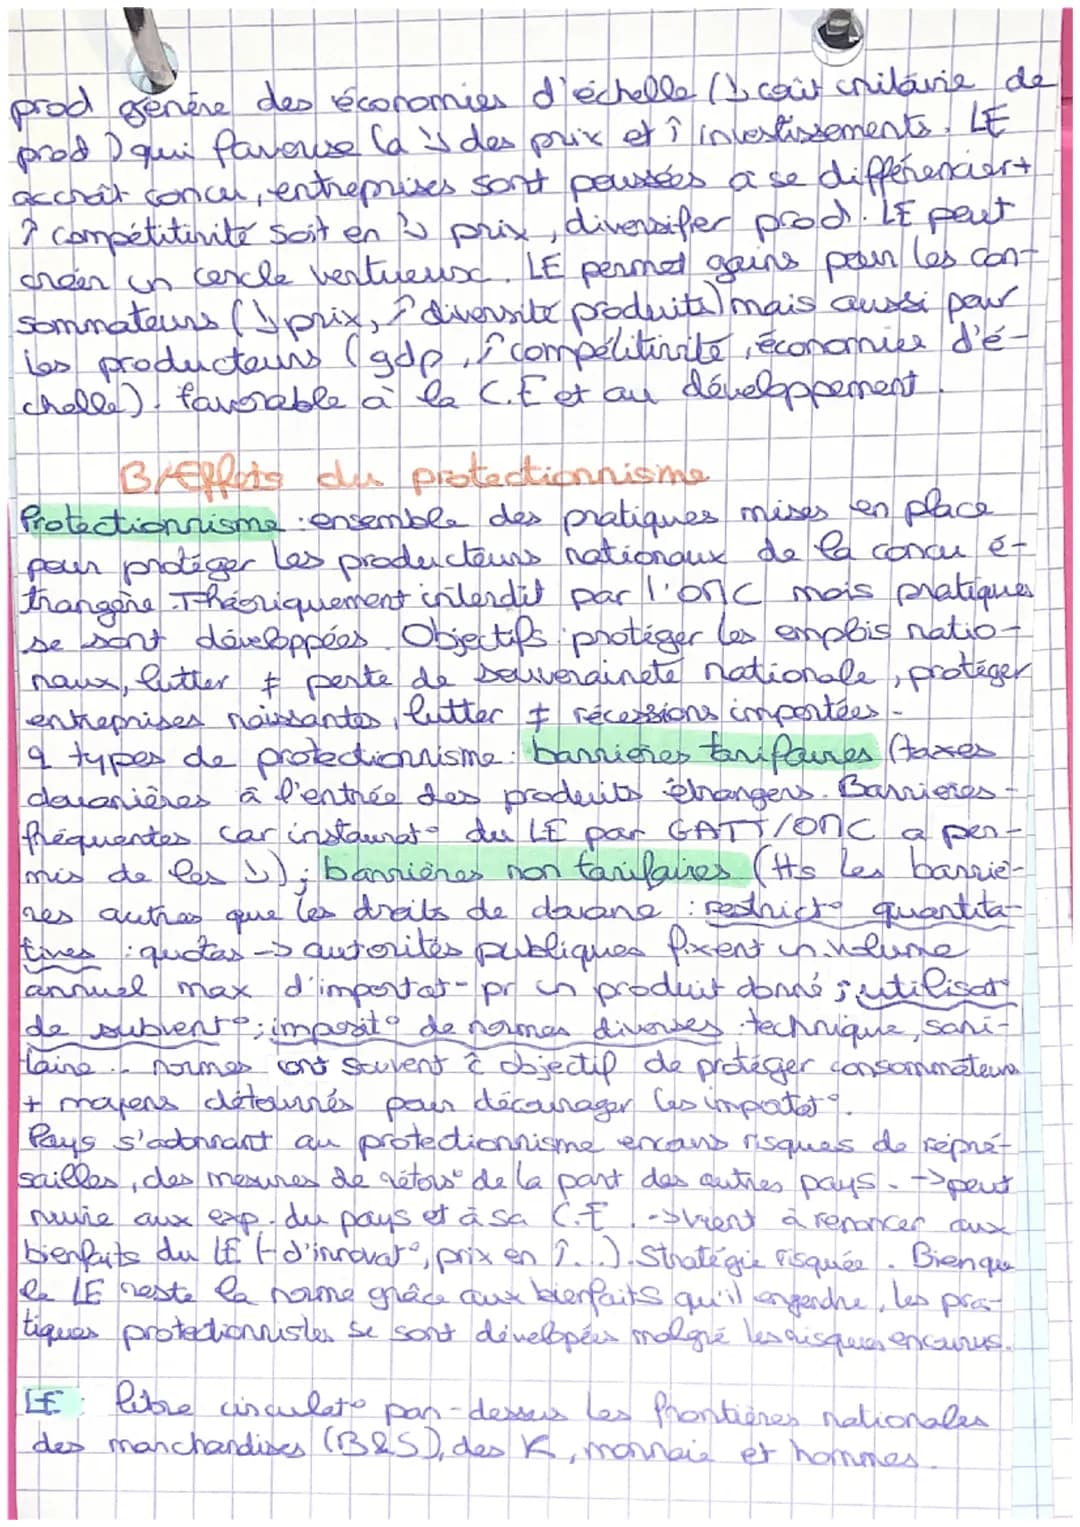 prod génère des économies d'échelle (↘ coût unitaire de
prod) qui favorise la ↘ des prix et ↑ investissements. LE
accroît concu, entreprises sont poussées à se différencier+
↗ compétitivité soit en ↘ prix, diversifier prod. LE peut
créer un cercle vertueux. LE permet gains pour les con-
sommateurs (↘ prix, ↗ diversité produits) mais aussi pour
les producteurs (gdp, ↗ compétitivité, économies d'é-
chelle). favorable à la C.E et au développement.
B/Effets du protectionnisme
Protectionnisme : ensemble des pratiques mises en place
pour protéger les producteurs nationaux de la concu é-
trangère. Théoriquement interdit par l'OMC mais pratiques
se sont développées. Objectifs : protéger les emplois natio-
naux, lutter ≠ perte de souveraineté nationale, protéger
entreprises naissantes, lutter ≠ récessions importées.
2 types de protectionnisme : barrières tarifaires (taxes
douanières à l'entrée des produits étrangers. Barrières -
fréquentes car instaurat° du LE par GATT/OMC a per-
mis de les ↘) ; barrières non tarifaires (tts les barriè-
res autres que les droits de douane : restrict° quantita-
tives : quotas -> autorités publiques fixent un volume
annuel max d'importat° pr un produit donné ; utilisat°
de subvent° ; imposit° de normes diverses : technique, sani-
taire... normes ont souvent c̄ objectif de protéger consommateurs
+ moyens détournés pour décourager les importat°.
Pays s'adonnant au protectionnisme encourt risques de repré-
sailles, des mesures de rétors° de la part des autres pays. -> peut
nuire aux exp. du pays et à sa C.E. -> vient à renoncer aux
bienfaits du LE (- d'innovat°, prix en ↑...). Stratégie risquée. Bien que
le LE reste la norme grâce aux bienfaits qu'il engendre, les pra-
tiques protectionnistes se sont dévelopées malgré les risques encourus.
LE : libre circulat° par-dessus les frontières nationales
des marchandises (B&S), des K, monnaie et hommes.